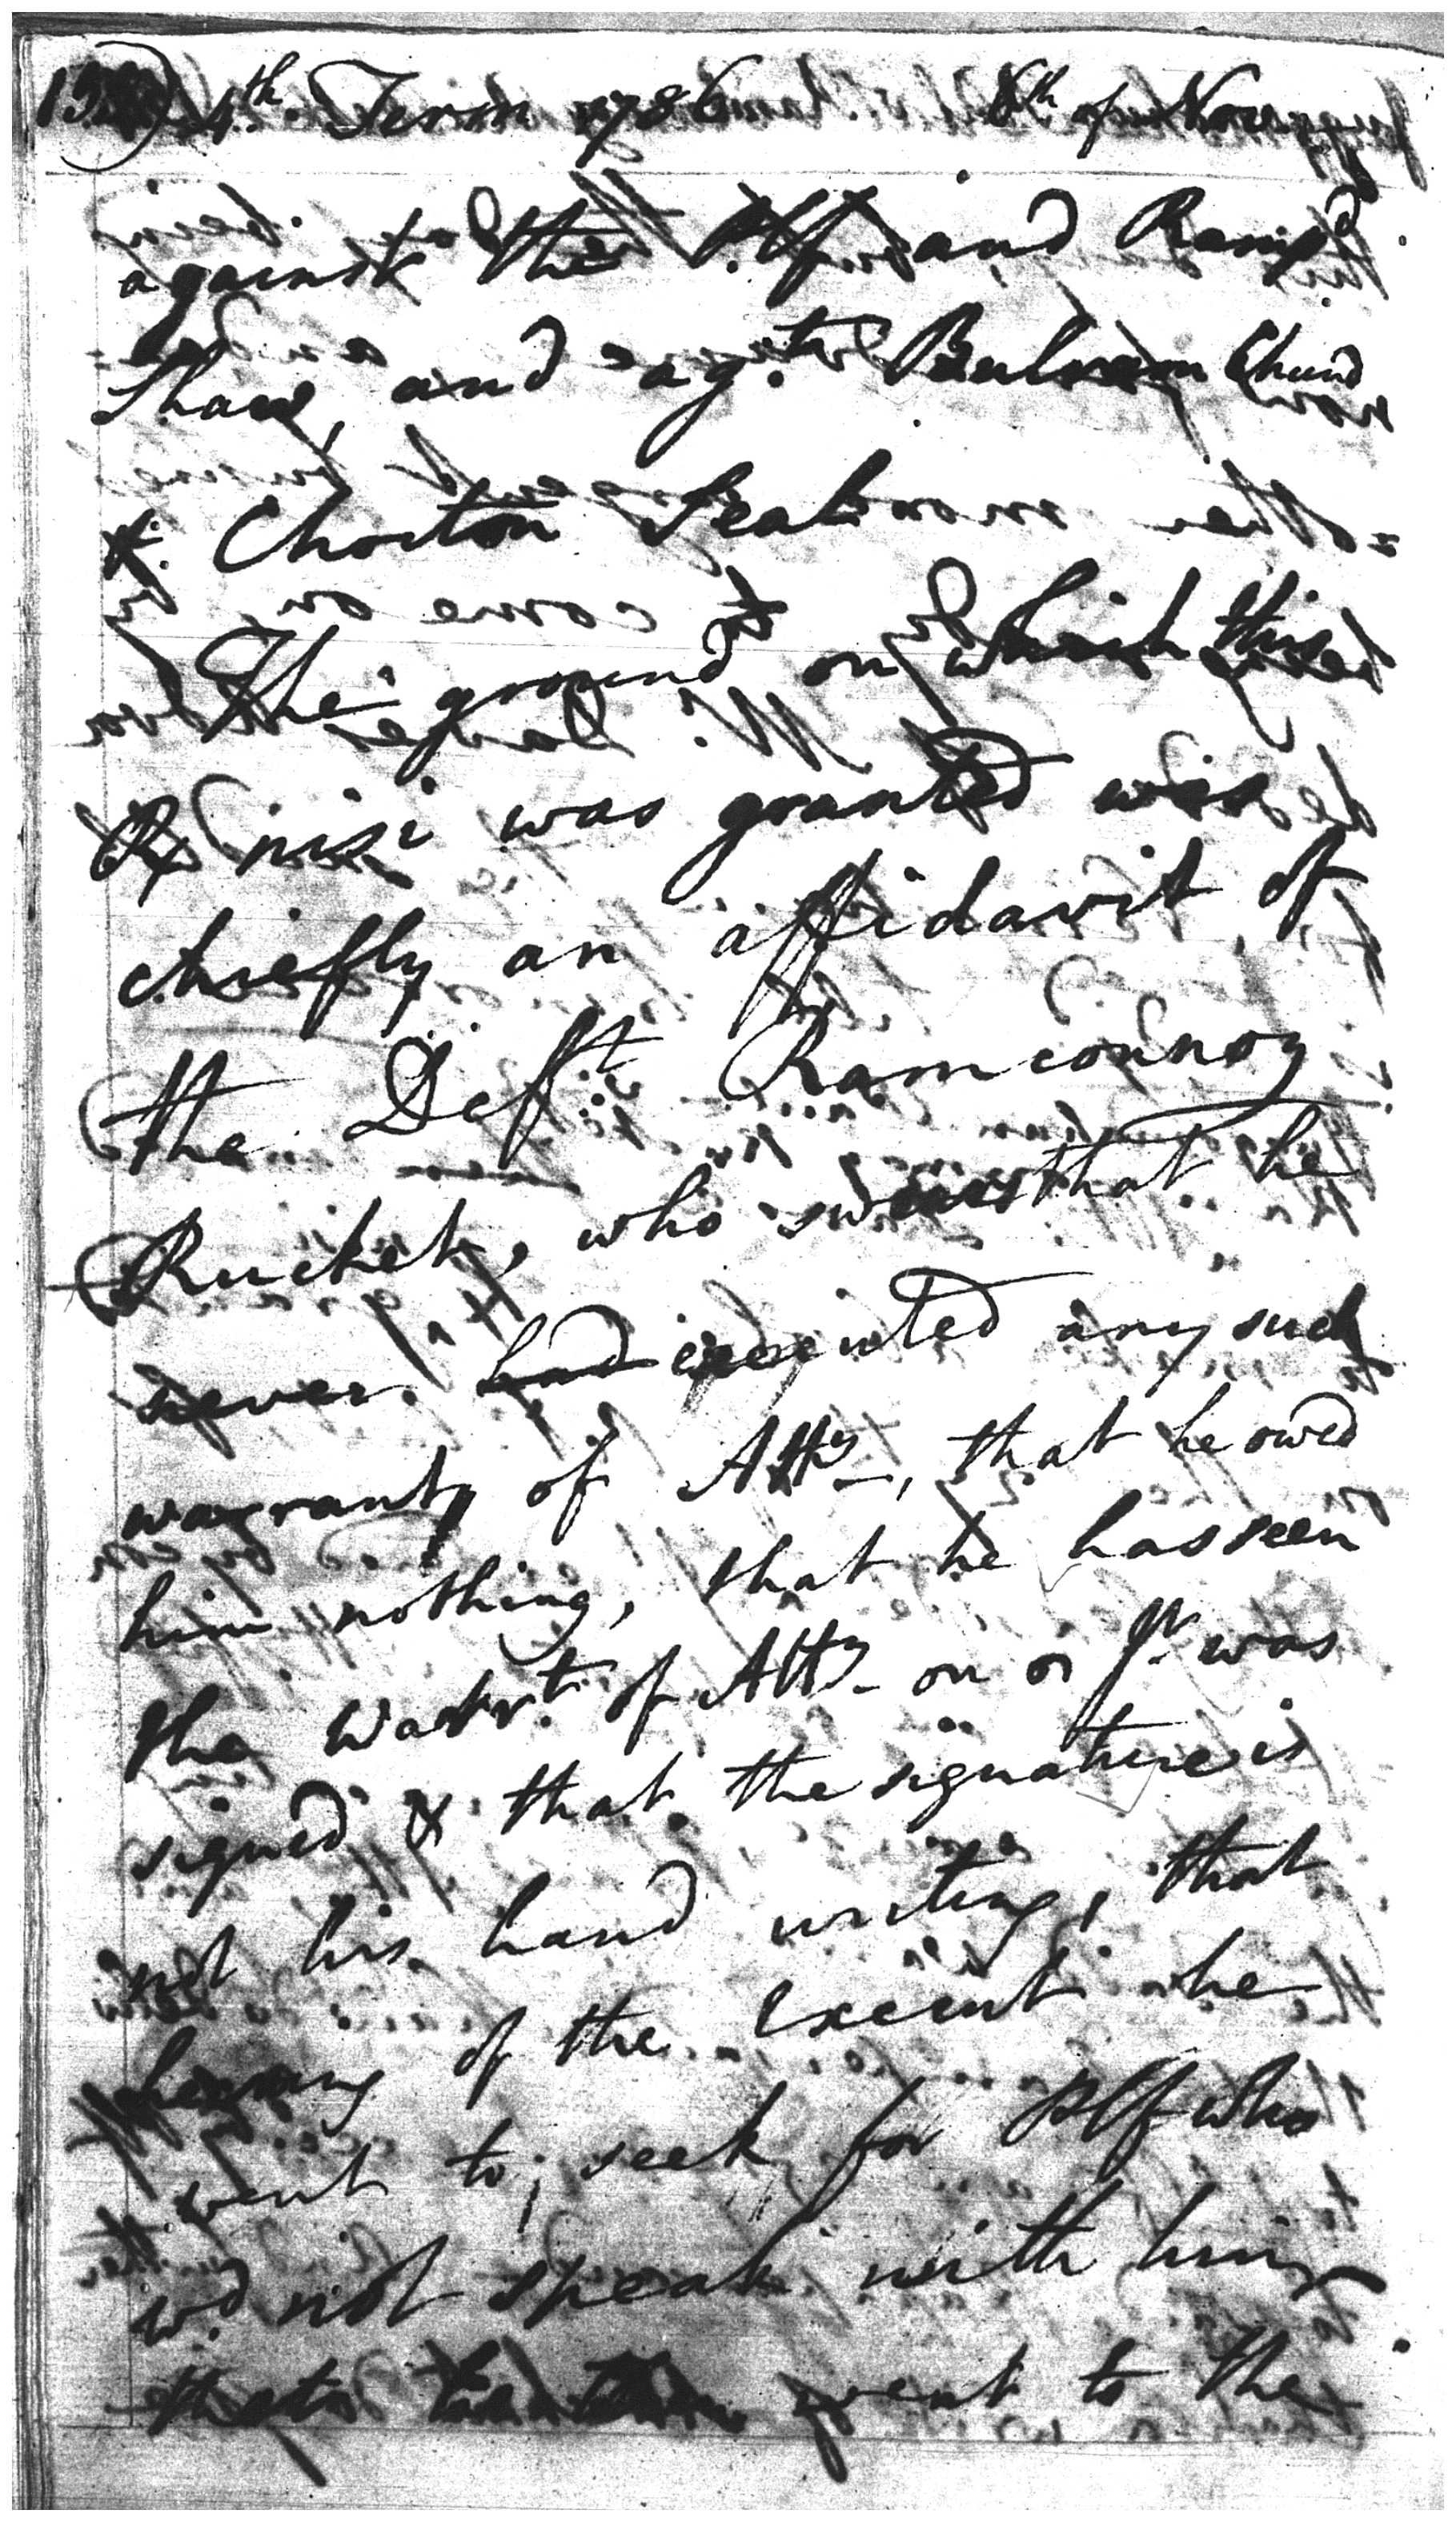 4th Term 1786 8th of Novr
against the Plf and Ramp^d
Shaw, and agt Bulram Chund
& Choiton Seal
The ground on which this
R nisi was granted was
chiefly an affidavit of
the Deft Ramconnoy
Rucket, who swears that he
never had executed any such
warrant of Atty, that he owed
him nothing, that he has seen
the Warrt of Atty on or
was
signed & that the signature is
not his hand writing, that
hearing of the Execut he
went to seek for Plf who
wd not speak with him
that went to the